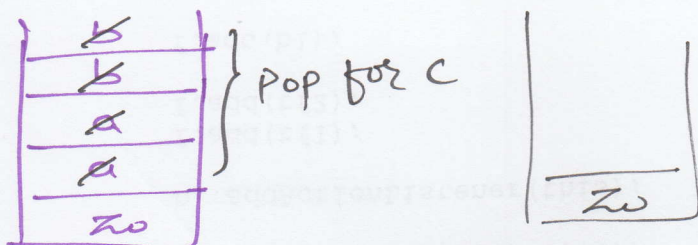 b
b
a
a
Z0
pop for c
Z0